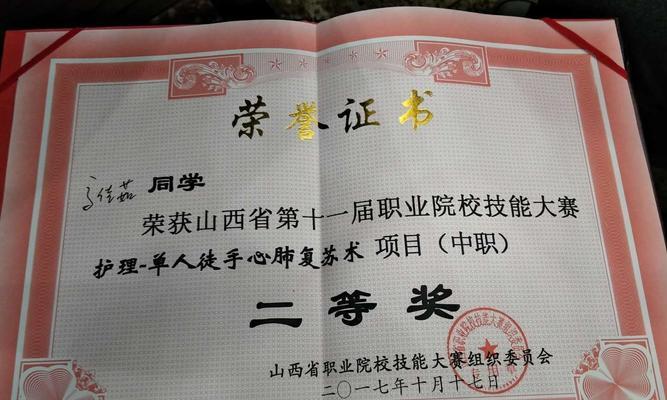 荣誉证书
佳茹 同学
荣获山西省第十一届职业院校技能大赛
护理-单人徒手心肺复苏术 项目（中职）
二等奖
山西省职业院校技能大赛组织委员会
二〇一七年十月十七日